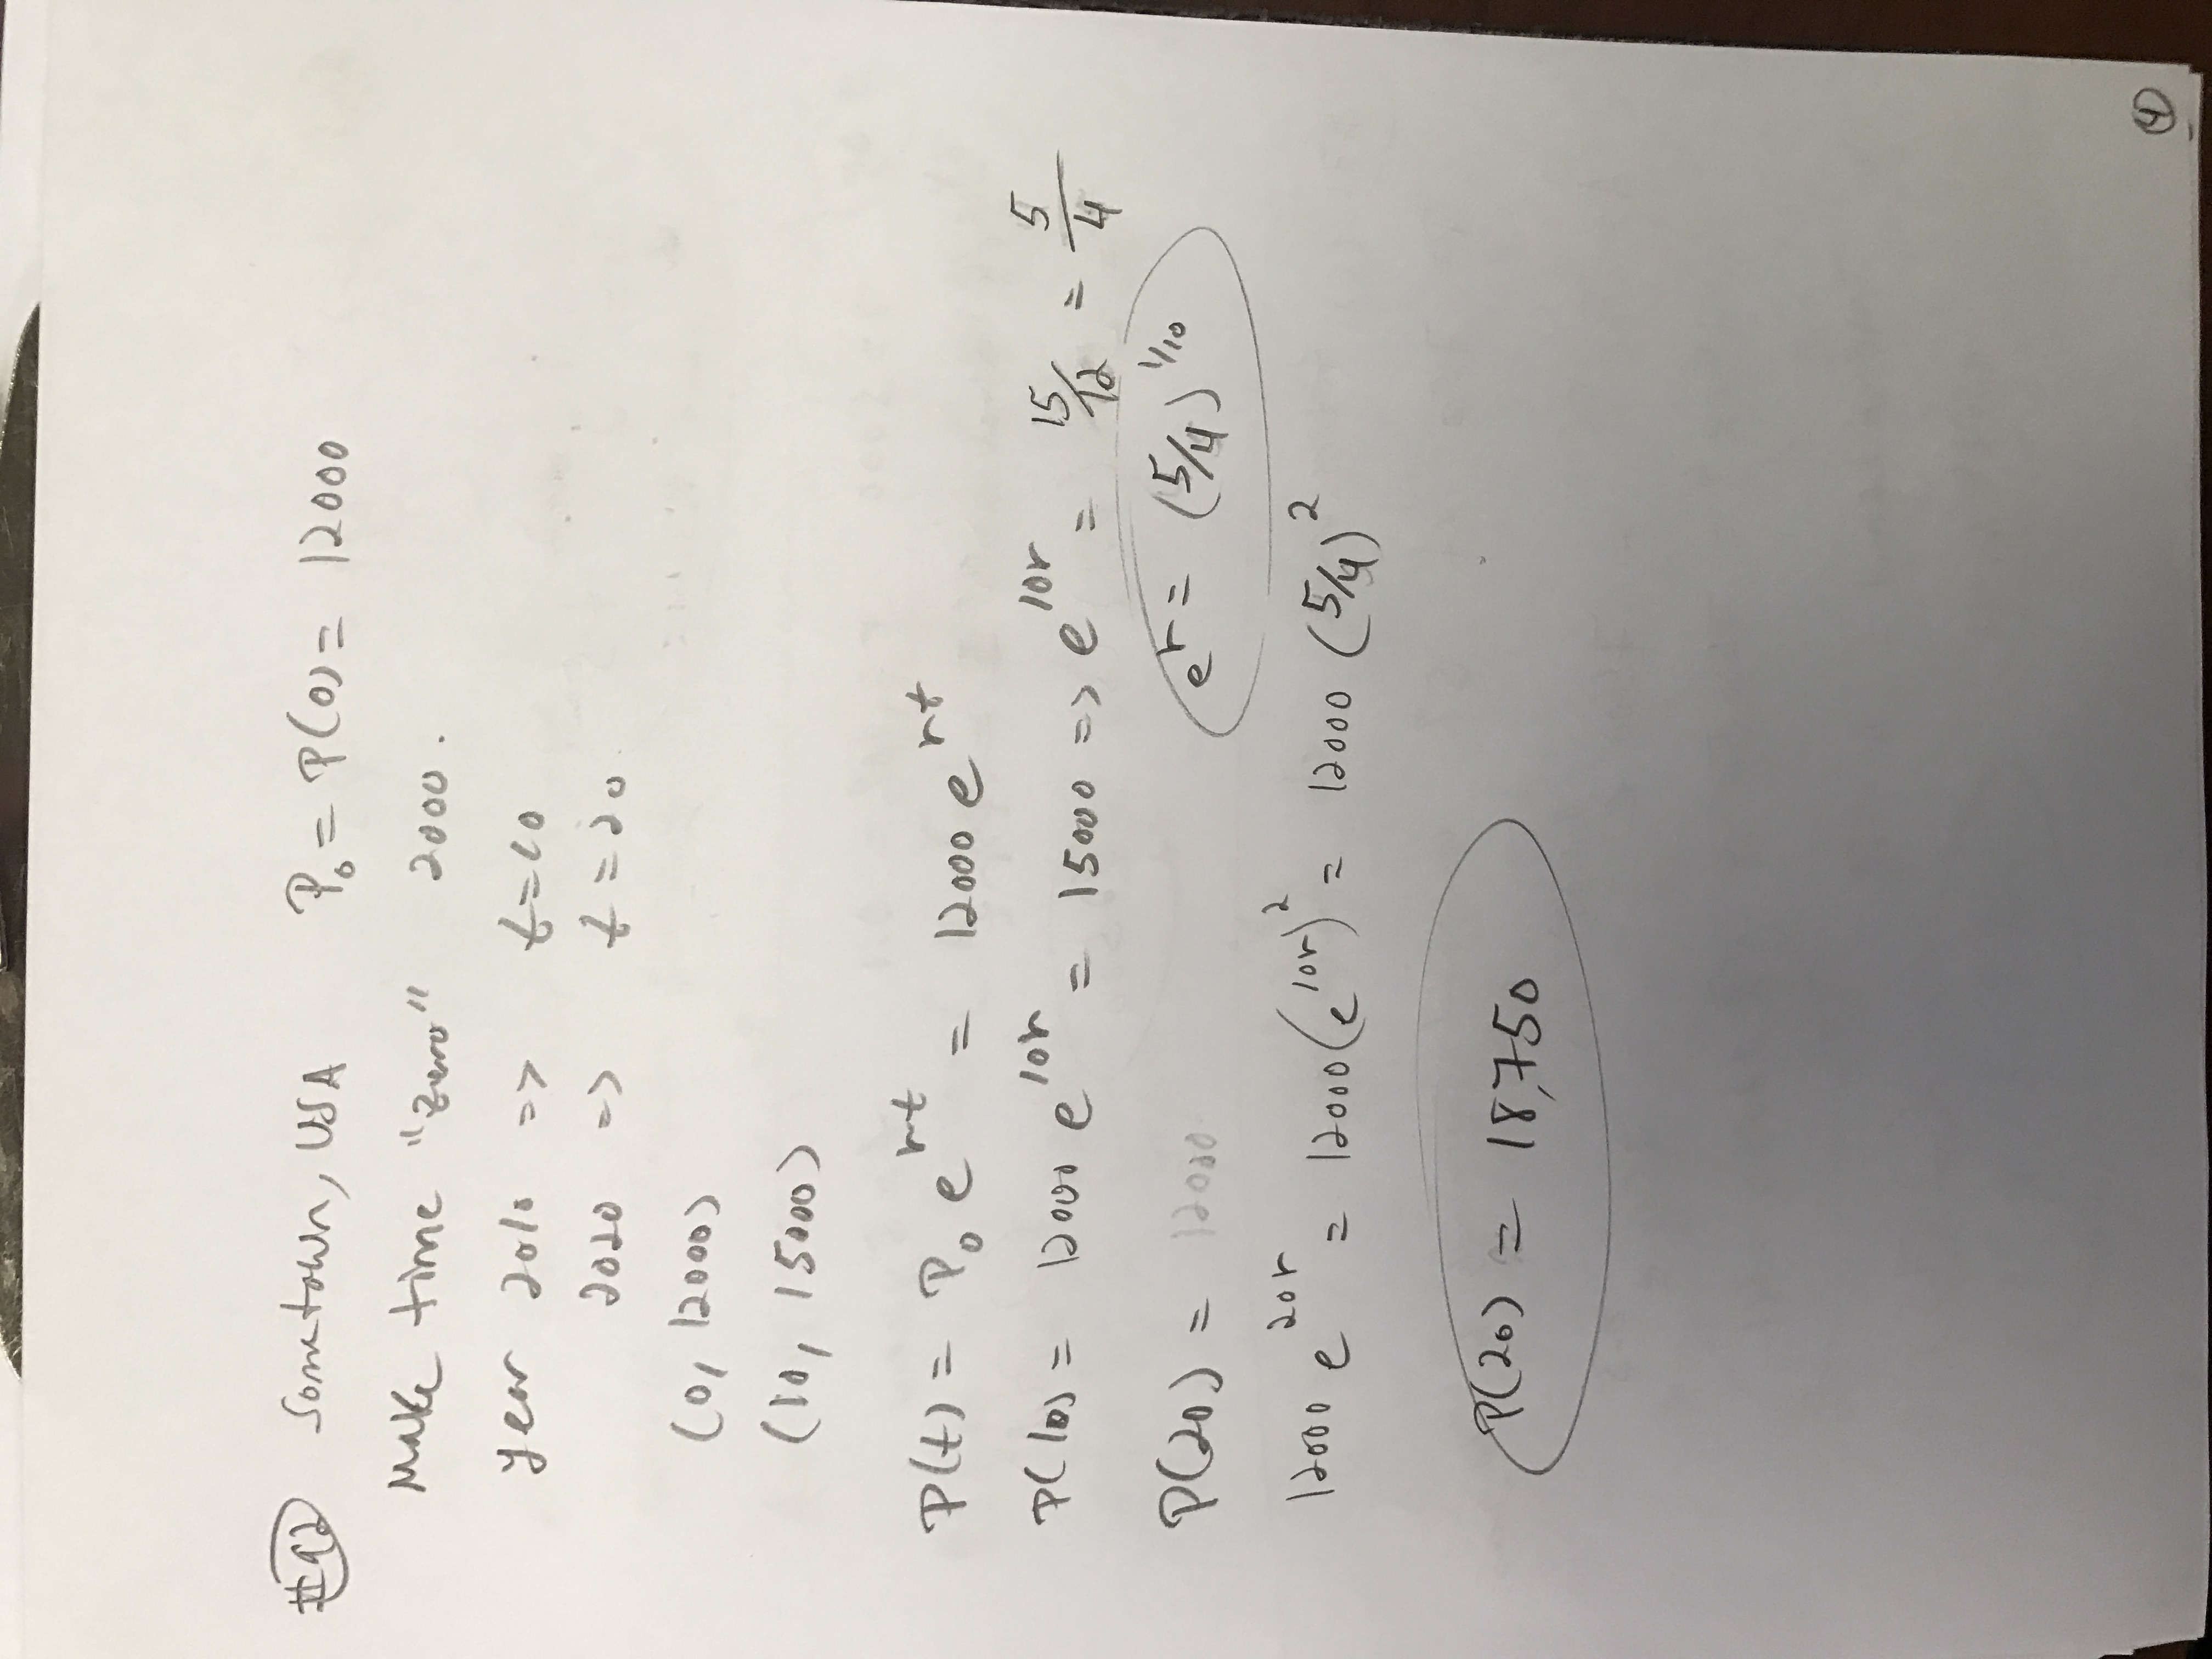 #92 Sometown, USA P₀ = P(0) = 12000
Make time "zero" 2000.
year 2010 => t=10
2020 => t=20
(0, 12000)
(10, 15000)
P(t) = P₀ e^rt = 12000 e^rt
P(10) = 12000 e^10r = 15000 => e^10r = 15/12 = 5/4
P(20) = 12000
e^r = (5/4)^1/10
12000 e^20r = 12000 (e^10r)^2 = 12000 (5/4)^2
P(20) = 18,750
4